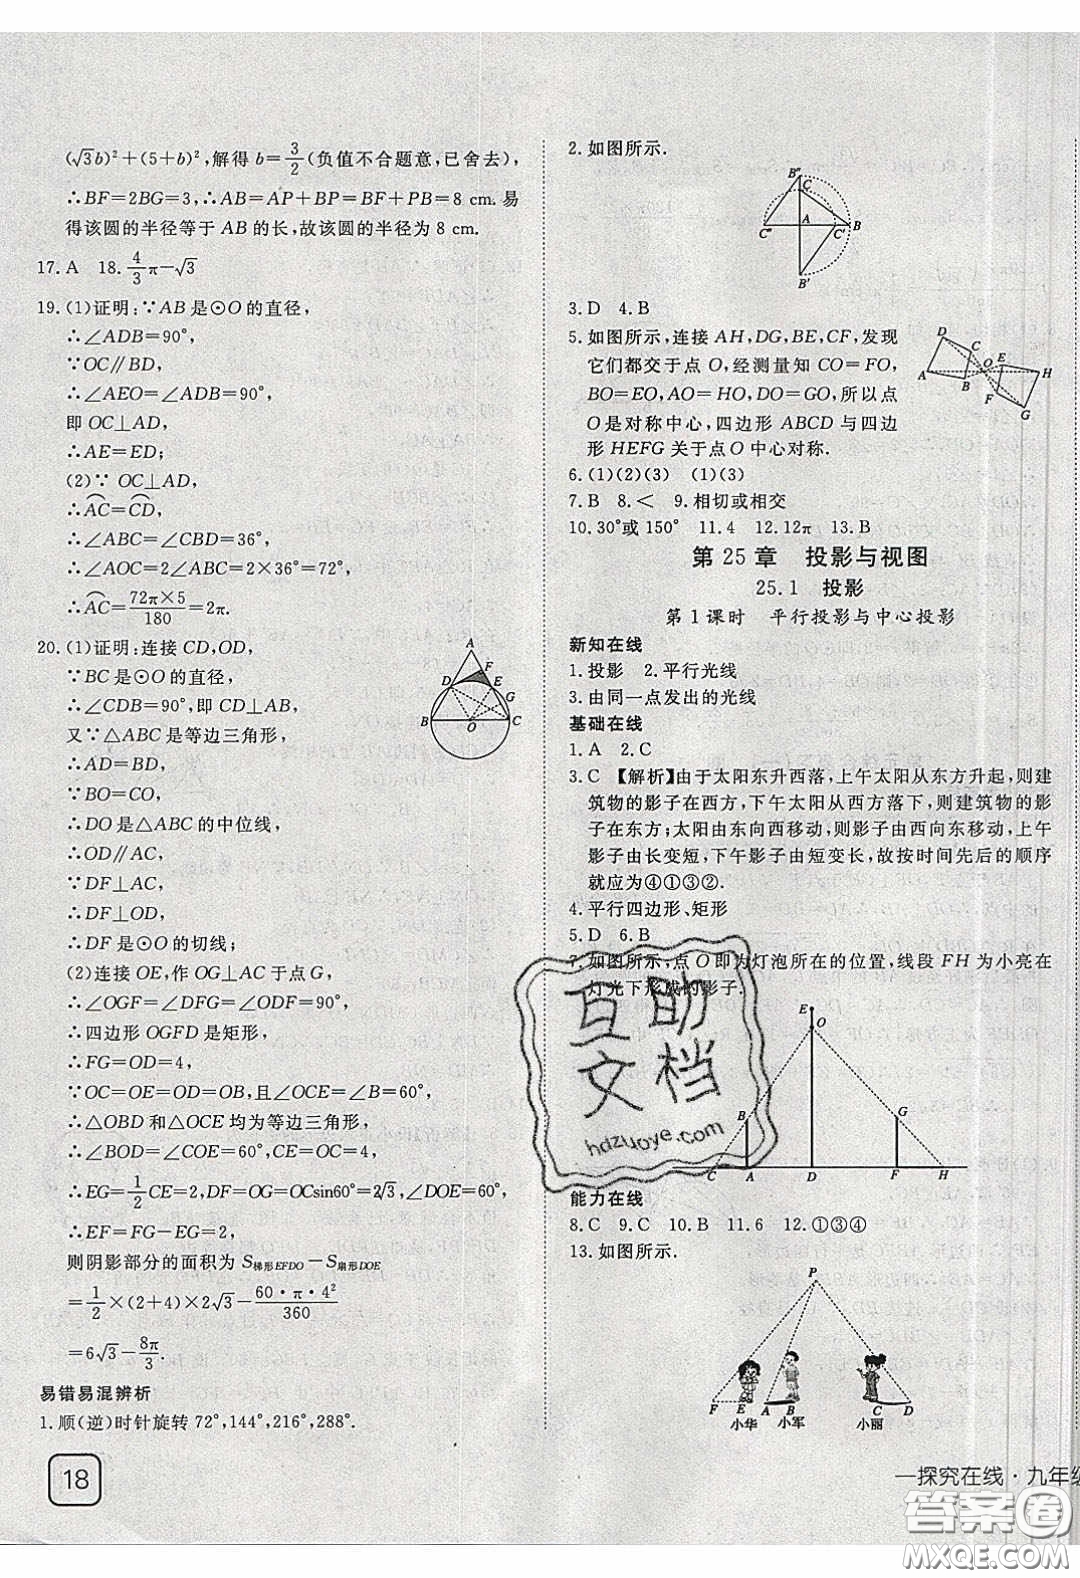 (√3b)²+(5+b)²,解得 b=3/2(负值不合题意,已舍去),
∴BF=2BG=3,∴AB=AP+BP=BF+BP=8 cm.易
得该圆的半径等于 AB 的长,故该圆的半径为 8 cm.
17.A 18.4/3π-√3
19.(1)证明:∵AB 是⊙O 的直径,
∴∠ADB=90°,
∵OC∥BD,
∴∠AEO=∠ADB=90°,
即 OC⊥AD,
∴AE=ED;
(2)∵ OC⊥AD,
∴⌒AC=⌒CD,
∴∠ABC=∠CBD=36°,
∴∠AOC=2∠ABC=2×36°=72°,
∴⌒AC=72π×5/180=2π.
20.(1)证明:连接 CD,OD,
∵BC 是⊙O 的直径,
∴∠CDB=90°,即 CD⊥AB,
又∵△ABC 是等边三角形,
∴AD=BD,
∵BO=CO,
∴DO 是△ABC 的中位线,
∴OD∥AC,
∵DF⊥AC,
∴DF⊥OD,
∴DF 是⊙O 的切线;
(2)连接 OE,作 OG⊥AC 于点 G,
∴∠OGF=∠DFG=∠ODF=90°,
∴四边形 OGFD 是矩形,
∴FG=OD=4,
∵OC=OE=OD=OB,且∠OCE=∠B=60°,
∴△OBD 和△OCE 均为等边三角形,
∴∠BOD=∠COE=60°,CE=OC=4,
∴EG=1/2CE=2,DF=OG=OCsin60°=2√3,∠DOE=60°,
∴EF=FG-EG=2,
则阴影部分的面积为 S梯形EFDO-S扇形DOE
=1/2×(2+4)×2√3-60·π·4²/360
=6√3-8π/3.
易错易混辨析
1.顺(逆)时针旋转 72°,144°,216°,288°.
18
A
F
D
E
G
B
O
C
2.如图所示.
B″
C
C″
A
C′
B
B′
3.D 4.B
5.如图所示,连接 AH,DG,BE,CF,发现
它们都交于点 O,经测量知 CO=FO,
BO=EO,AO=HO,DO=GO,所以点
O 是对称中心,四边形 ABCD 与四边
形 HEFG 关于点 O 中心对称.
D
C
E
A
B
O
H
F
G
6.(1)(2)(3) (1)(3)
7.B 8.< 9.相切或相交
10.30°或 150° 11.4 12.12π 13.B
第 25 章 投影与视图
25.1 投影
第 1 课时 平行投影与中心投影
新知在线
1.投影 2.平行光线
3.由同一点发出的光线
基础在线
1.A 2.C
3.C 【解析】由于太阳东升西落,上午太阳从东方升起,则建
筑物的影子在西方,下午太阳从西方落下,则建筑物的影
子在东方;太阳由东向西移动,则影子由西向东移动,上午
影子由长变短,下午影子由短变长,故按时间先后的顺序
就应为④①③②.
4.平行四边形、矩形
5.D 6.B
7.如图所示,点 O 即为灯泡所在的位置,线段 FH 为小亮在
灯光下形成的影子.
E
O
B
G
C
A
D
F
H
互助
文档
hdzuoye.com
能力在线
8.C 9.C 10.B 11.6 12.①③④
13.如图所示.
P
F
E
A
B
C
D
小华
小军
小丽
一探究在线·九年级
答案圈
MXQE.COM